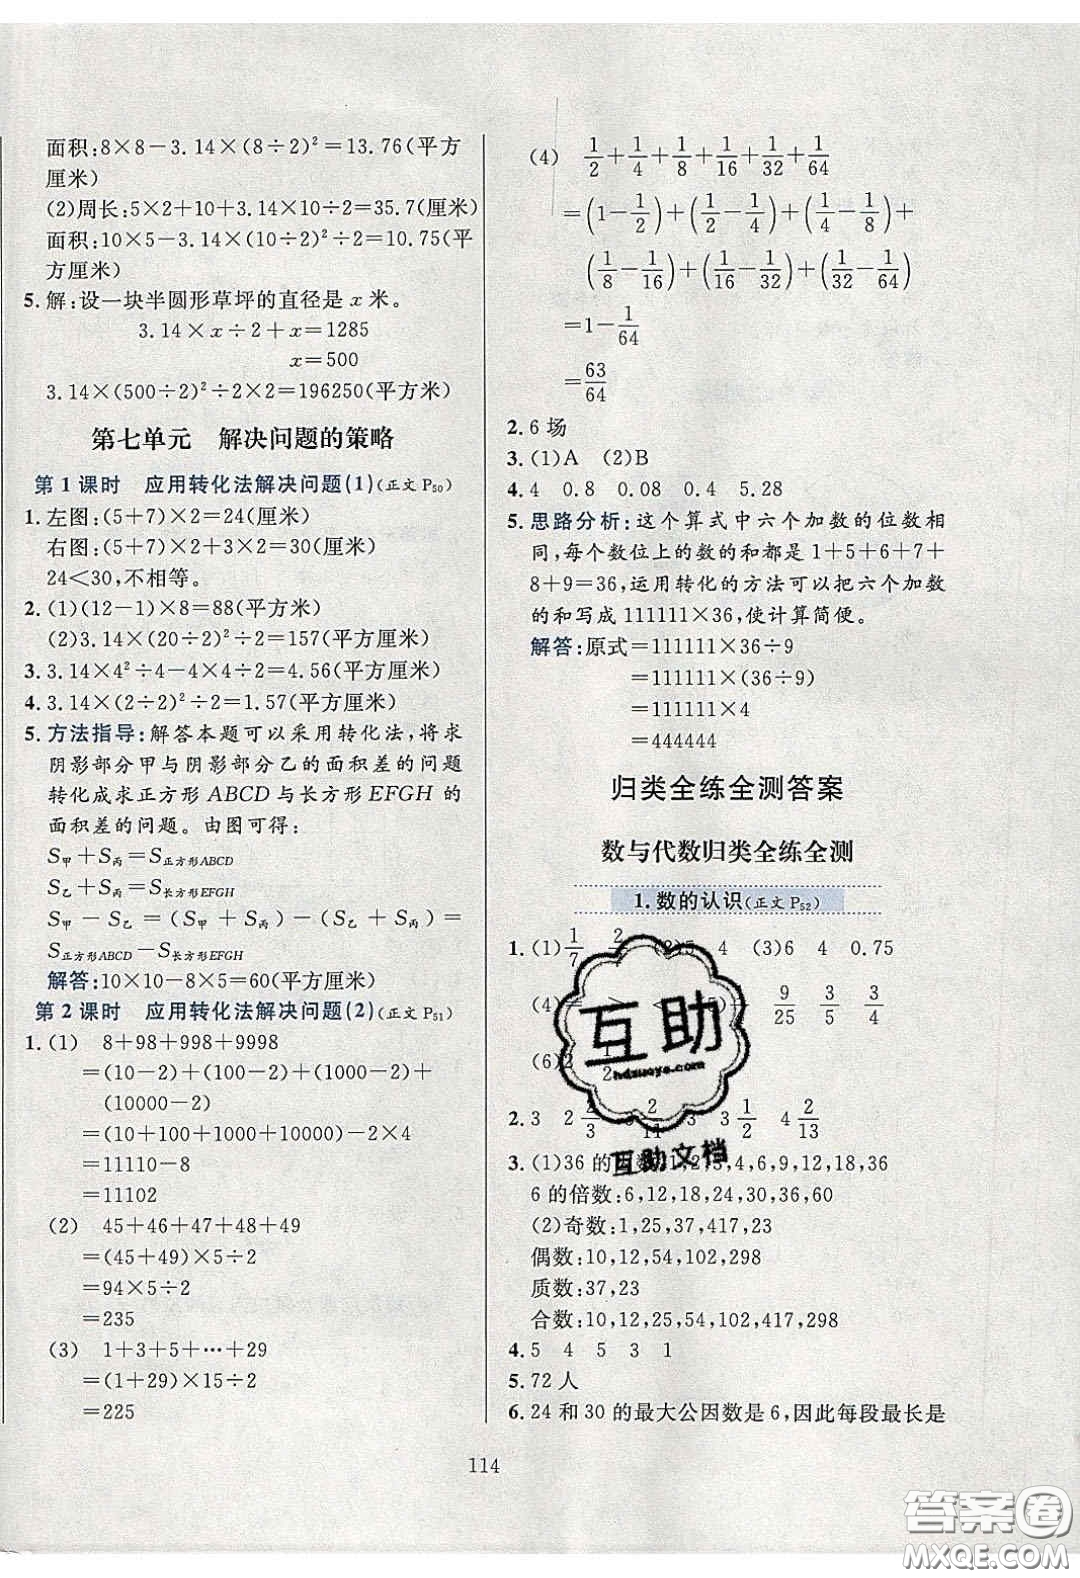 面积:8×8－3.14×(8÷2)²＝13.76(平方
厘米)
(2)周长:5×2＋10＋3.14×10÷2＝35.7(厘米)
面积:10×5－3.14×(10÷2)²÷2＝10.75(平
方厘米)
5.解:设一块半圆形草坪的直径是 x 米。
3.14×x÷2＋x＝1285
x＝500
3.14×(500÷2)²÷2×2＝196250(平方米)
第七单元　解决问题的策略
第1课时　应用转化法解决问题(1)(正文 P50)
1.左图:(5＋7)×2＝24(厘米)
右图:(5＋7)×2＋3×2＝30(厘米)
24＜30,不相等。
2.(1)(12－1)×8＝88(平方米)
(2)3.14×(20÷2)²÷2＝157(平方厘米)
3.3.14×4²÷4－4×4÷2＝4.56(平方厘米)
4.3.14×(2÷2)²÷2＝1.57(平方厘米)
5.方法指导:解答本题可以采用转化法,将求
阴影部分甲与阴影部分乙的面积差的问题
转化成求正方形 ABCD 与长方形 EFGH 的
面积差的问题。由图可得:
S甲＋S丙＝S正方形ABCD
S乙＋S丙＝S长方形EFGH
S甲－S乙＝(S甲＋S丙)－(S乙＋S丙)＝
S正方形ABCD－S长方形EFGH
解答:10×10－8×5＝60(平方厘米)
第2课时　应用转化法解决问题(2)(正文 P51)
1.(1)　8＋98＋998＋9998
＝(10－2)＋(100－2)＋(1000－2)＋
(10000－2)
＝(10＋100＋1000＋10000)－2×4
＝11110－8
＝11102
(2)　45＋46＋47＋48＋49
＝(45＋49)×5÷2
＝94×5÷2
＝235
(3)　1＋3＋5＋…＋29
＝(1＋29)×15÷2
＝225
(4)　1/2＋1/4＋1/8＋1/16＋1/32＋1/64
＝(1－1/2)＋(1/2－1/4)＋(1/4－1/8)＋
(1/8－1/16)＋(1/16－1/32)＋(1/32－1/64)
＝1－1/64
＝63/64
2.6场
3.(1)A　(2)B
4.4　0.8　0.08　0.4　5.28
5.思路分析:这个算式中六个加数的位数相
同,每个数位上的数的和都是1＋5＋6＋7＋
8＋9＝36,运用转化的方法可以把六个加数
的和写成111111×36,使计算简便。
解答:原式＝111111×36÷9
＝111111×(36÷9)
＝111111×4
＝444444
归类全练全测答案
数与代数归类全练全测
1.数的认识(正文 P52)
1.(1)1/7　(2)5　4　(3)6　4　0.75
(4)＝　9/25　3/5　3/4
(6)2
2.3　2 2/3　3　3 1/2　4 2/13
3.(1)36的因数:1,2,3,4,6,9,12,18,36
6的倍数:6,12,18,24,30,36,60
(2)奇数:1,25,37,417,23
偶数:10,12,54,102,298
质数:37,23
合数:10,12,25,54,102,417,298
4.5　4　5　3　1
5.72人
6.24和30的最大公因数是6,因此每段最长是
114
互助
hdzuoye.com
互助文档
答案圈
MXQE.COM